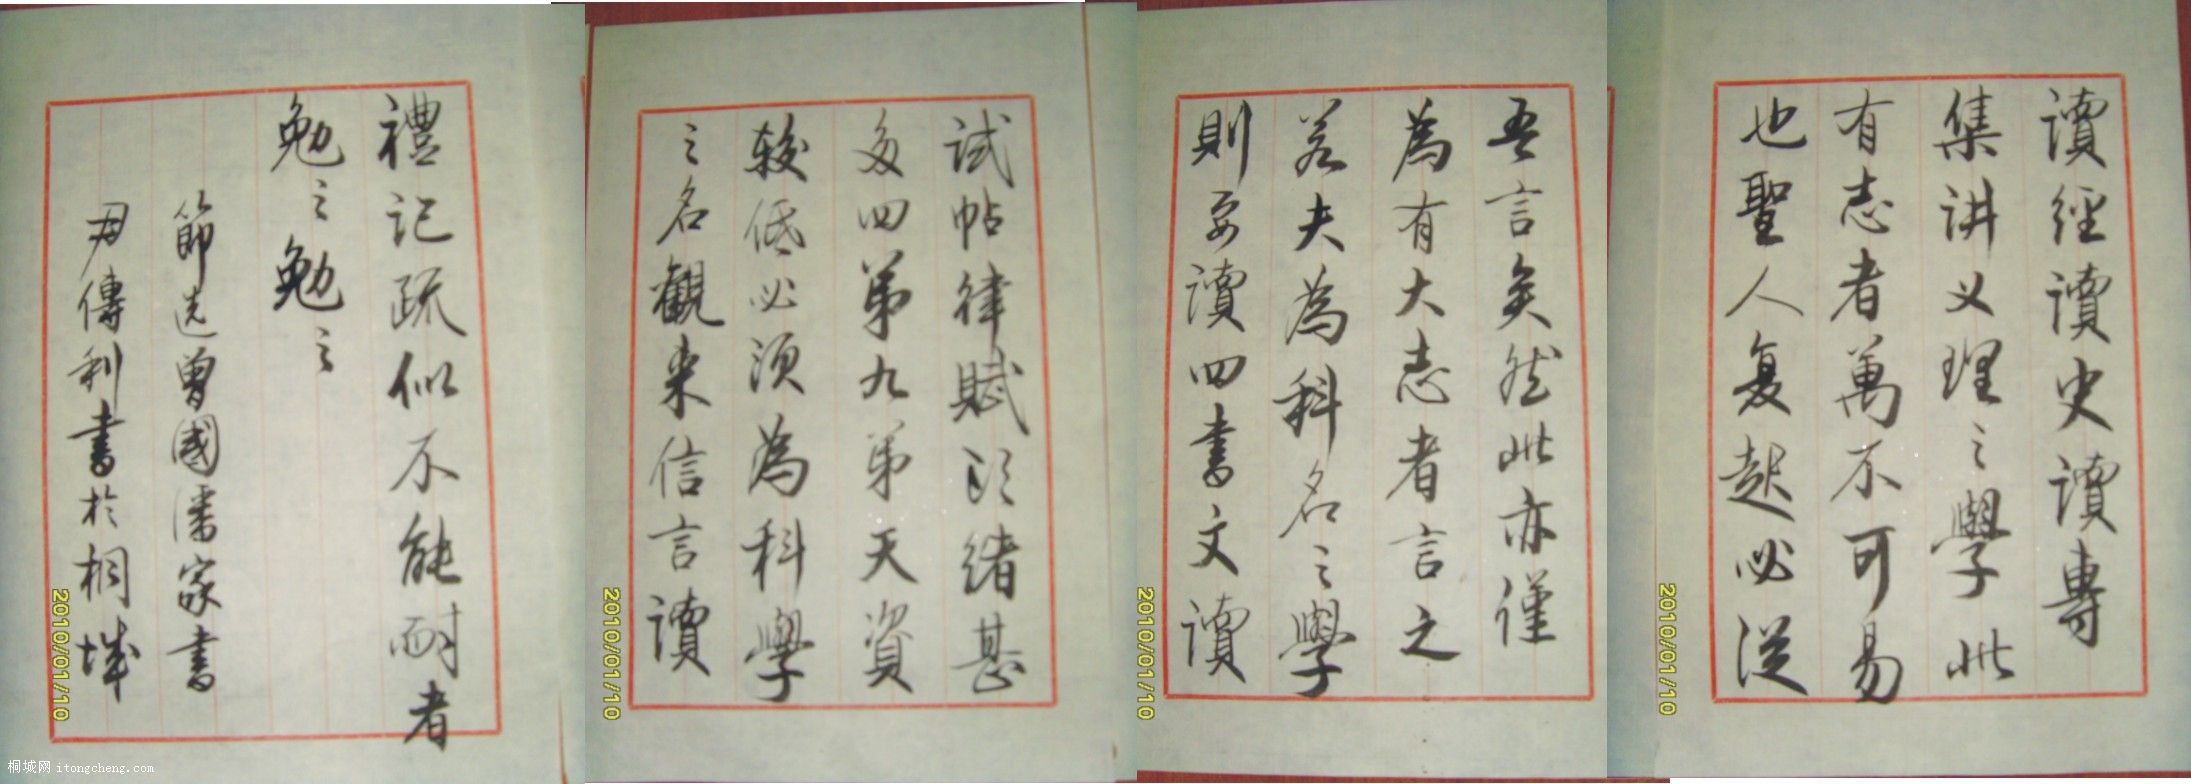 讀經讀史讀專
集讲义理之學此
有志者萬不可易
也聖人复起必從
吾言矣然此亦僅
為有大志者言之
若夫為科名之學
則要讀四書文讀
試帖律賦頭緒甚
多四弟九弟天資
較低必須為科學
之名觀来信言讀
禮記疏似不能耐者
勉之勉之
節选曾國藩家書
傳利書於桐城
2010/01/10
2010/01/10
2010/01/10
2010/01/10
桐城网 itongcheng.com